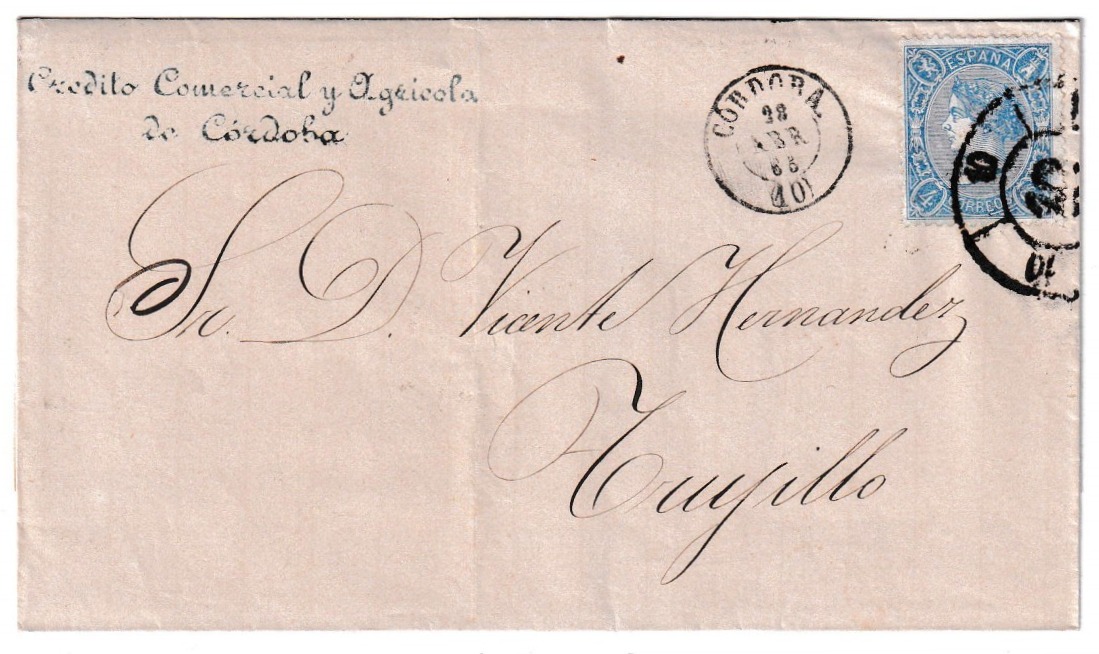 Credito Comercial y Agricola
de Córdoba
CORDOBA
28
ABR
(10)
ESPAÑA
4
4 CORREOS
10
10
Sr. D. Vicente Hernandez
Trujillo